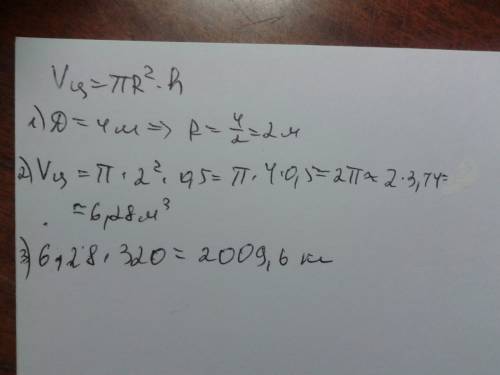 Vц = πR²·h
1) D = 4м => R = 4/2 = 2м
2) Vц = π · 2² · 0,5 = π · 4 · 0,5 = 2π ≈ 2 · 3,14 =
= 6,28 м³
3) 6,28 · 320 = 2009,6 кг